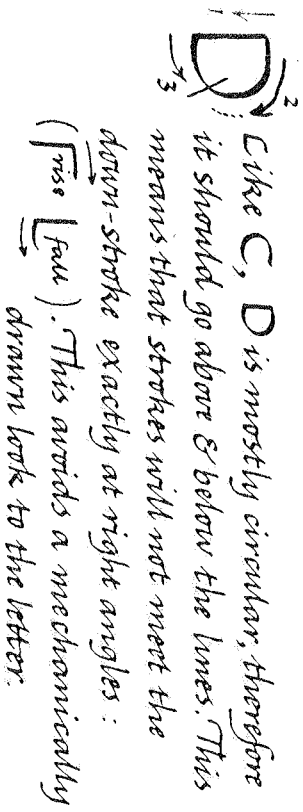 1 D 2 3 Like C, D is mostly circular, therefore
it should go above & below the lines. This
means that strokes will not meet the
down-stroke exactly at right angles:
(rise fall). This avoids a mechanically
drawn look to the letter.